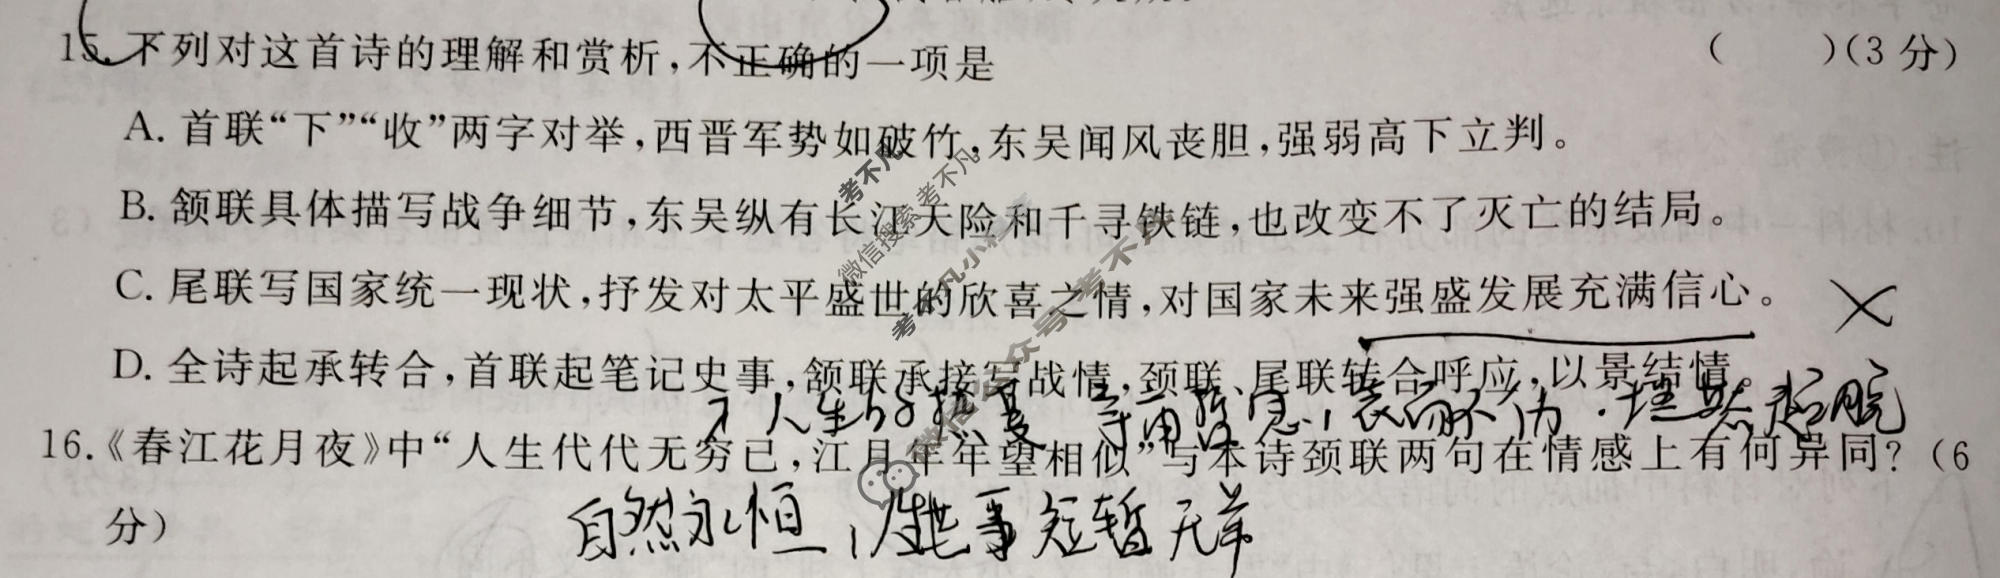 15. 下列对这首诗的理解和赏析,不正确的一项是 ( )(3分)
A. 首联“下”“收”两字对举,西晋军势如破竹,东吴闻风丧胆,强弱高下立判。
B. 颔联具体描写战争细节,东吴纵有长江天险和千寻铁链,也改变不了灭亡的结局。
C. 尾联写国家统一现状,抒发对太平盛世的欣喜之情,对国家未来强盛发展充满信心。
D. 全诗起承转合,首联起笔记史事,颔联承接写战情,颈联、尾联转合呼应,以景结情。
人生的热爱 哀而不伤
16.《春江花月夜》中“人生代代无穷已,江月年年望相似”与本诗颈联两句在情感上有何异同?(6
分)
自然永恒, 事短暂无常
考不凡
微信搜索考不凡
考不凡小程序
微信公众号:考不凡